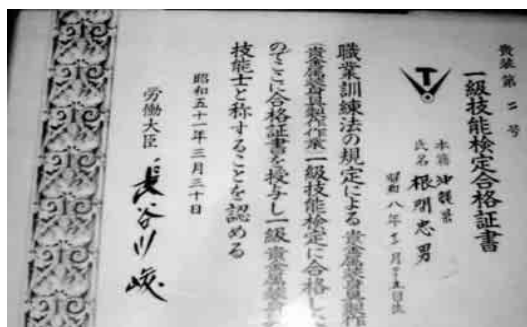 貴装第二号
一級技能検定合格証書
本籍 沖縄県
氏名 根間忠男
昭和八年
職業訓練法の規定による貴金属装身具製作
(貴金属装身具製作作業)一級技能検定に合格した
のでここに合格証書を授与し一級貴金属装身具
技能士と称することを認める
昭和五十一年三月三十日
労働大臣 長谷川峻